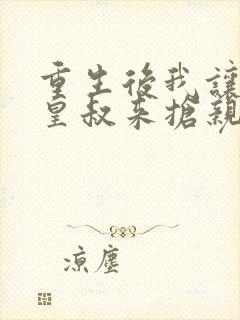 重生後我讓
皇叔来搶親
涼塵